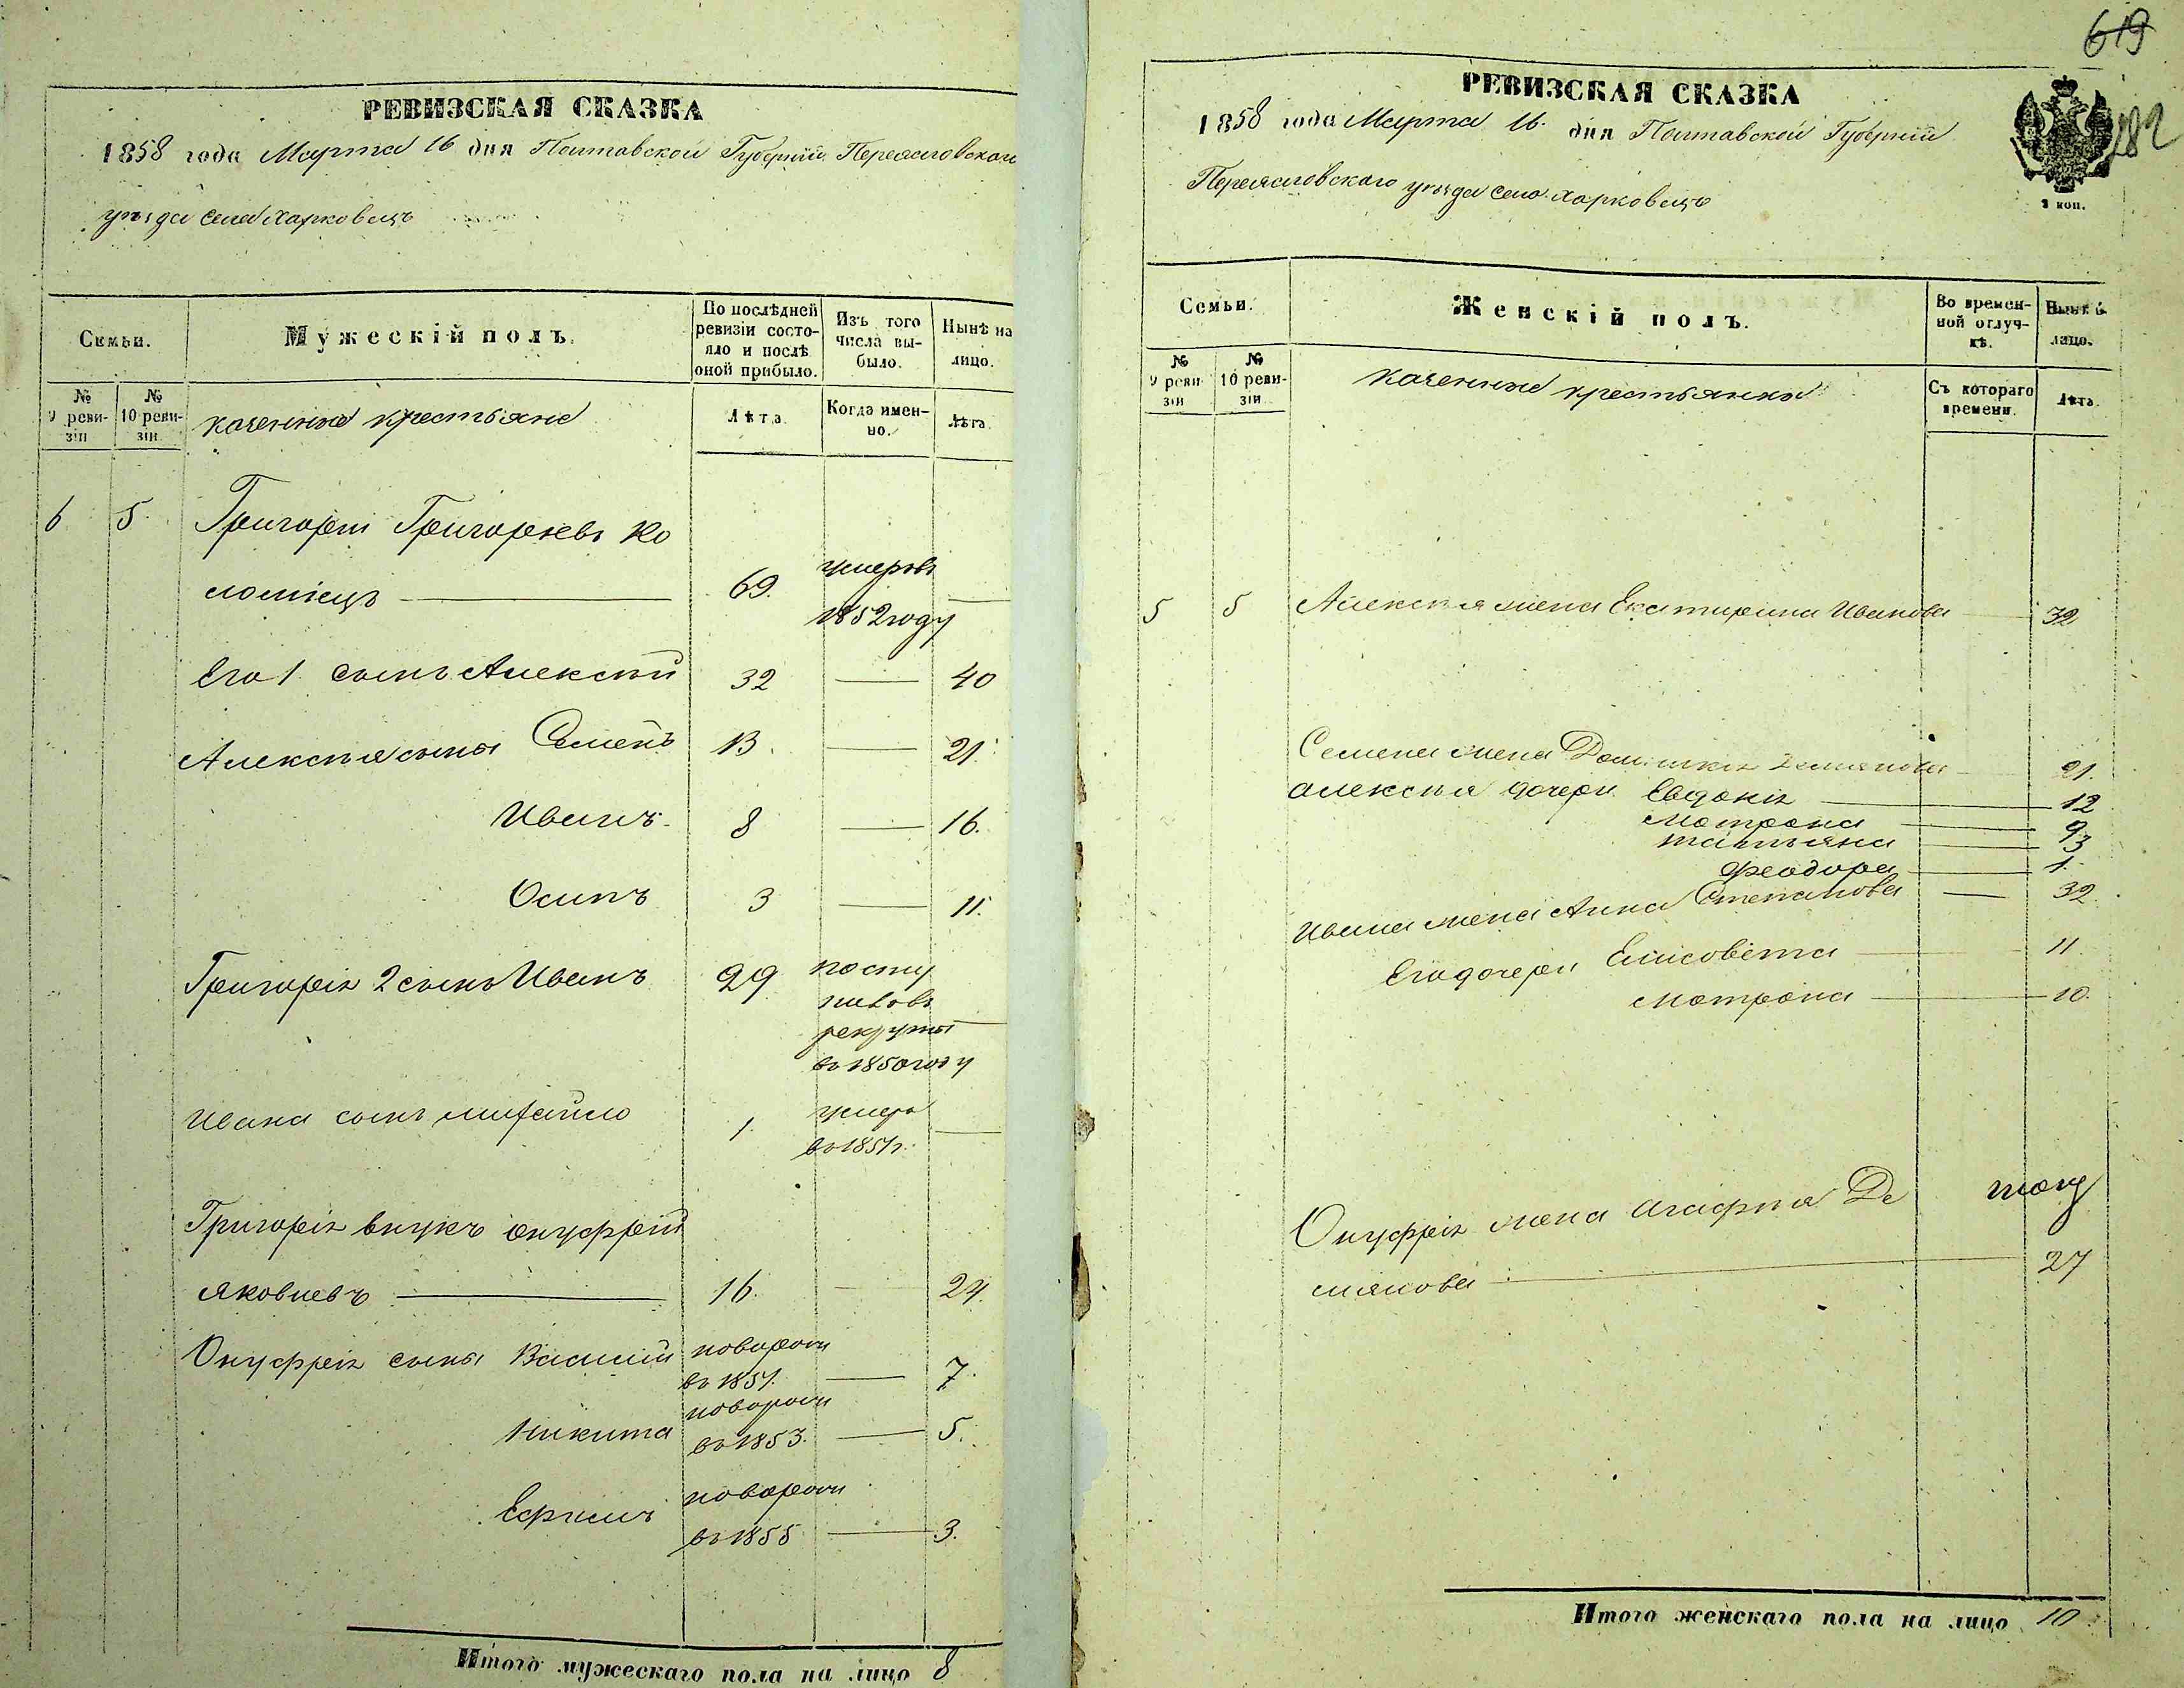 РЕВИЗСКАЯ СКАЗКА
1858 года Марта 16 дня Полтавской Губернии Переясловскаго
уѣзда села Харковецъ
Семьи.
Мужескій полъ.
По послѣдней ревизіи состояло и послѣ оной прибыло.
Изъ того числа выбыло.
Нынѣ на лицо.
№ 9 ревизіи
№ 10 ревизіи
казенные крестьяне
Лѣта.
Когда именно.
Лѣта.
6 5 Григорій Григорьевъ Ко
ломіецъ 69. умеръ въ 1852 году
Его 1 сынъ Алексѣй 32 40
Алексѣя сыны Семенъ 13. 21.
Иванъ 8 16.
Осипъ 3 11.
Григорія 2 сынъ Иванъ 29
посту
рекруты
въ 1850 году
Ивана сынъ Михайло 1. умеръ
въ 1851 г.
Григорія внукъ Онуфрій
Яковлевъ 16. 24.
Онуфрія сыны Василій новорож
въ 1851. 7.
Никита новорож
въ 1853. 5.
Ефимъ новорож
въ 1855 3.
Итого мужескаго пола на лицо 8
619
282
РЕВИЗСКАЯ СКАЗКА
1858 года Марта 16. дня Полтавской Губерніи
Переясловскаго уѣзда село Харковецъ
1 коп.
Семьи.
Женскій полъ.
Во временной отлучкѣ.
Нынѣ на лицо.
№ 9 ревизіи
№ 10 ревизіи
казенные крестьянки
Съ котораго времени.
Лѣта.
5 5 Алексѣя жена Екатирина Иванова 32
Семена жена Домникія Демянова 21.
Алексѣя дочери Евдокія 12
Мотрона 9
Татьяна 3
Феодора 1.
Ивана жена Анна Степанова 32.
Его дочери Елисовета 11.
Мотрона 10.
Онуфрія жена Агафия Де
мянова 27
Итого женскаго пола на лицо 10